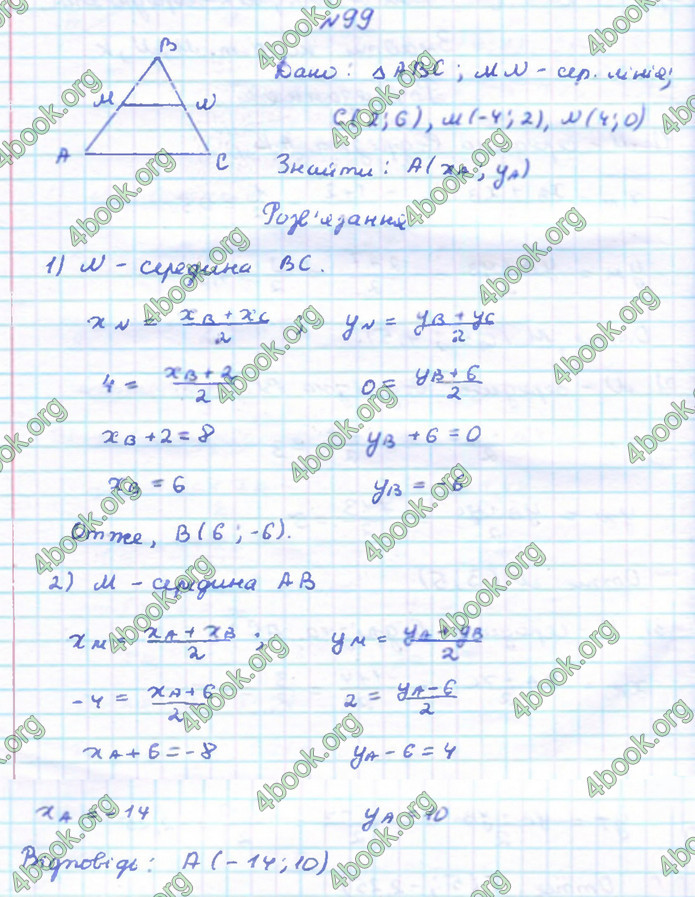 №99
B
M N
A C
Дано: △ABC; MN - сер. лінія;
C(2; 6), M(-4; 2), N(4; 0)
Знайти: A(xA; yA)
Розв'язання
1) N - середина BC.
xN = (xB + xC)/2 ; yN = (yB + yC)/2
4 = (xB + 2)/2 0 = (yB + 6)/2
xB + 2 = 8 yB + 6 = 0
xB = 6 yB = -6
Отже, B(6; -6).
2) M - середина AB
xM = (xA + xB)/2 ; yM = (yA + yB)/2
-4 = (xA + 6)/2 2 = (yA - 6)/2
xA + 6 = -8 yA - 6 = 4
xA = -14 yA = 10
Відповідь: A(-14; 10)
4book.org